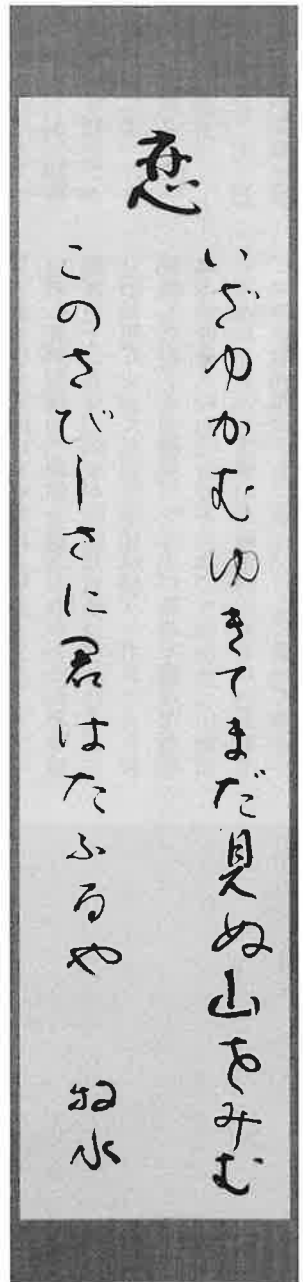 恋
いざゆかむゆきてまだ見ぬ山をみむ
このさびしさに君はたふるや
牧水